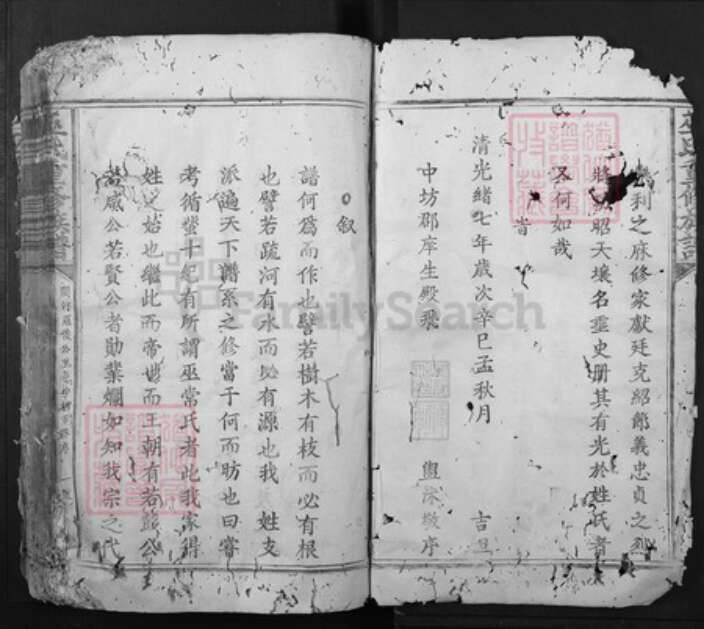 利之麻修家獻廷克紹節義忠貞之
昭天壤名垂史册其有光於姓氏者
又何如哉
旹
清光緒七年歲次辛巳孟秋月 吉旦
中坊郡庠生殿飛 敬序
叙
譜何爲而作也譬若樹木有枝而必有根
也譬若疏河有水而必有源也我姓支
派遍天下譜系之修當于何而昉也曰嘗
考循蜚十紀有所謂巫常氏者此我家得
姓之始也繼此而帝世而王朝有若 公
若咸公若賢公者勛業爛如知我宗之代
巫氏重修族譜
FamilySearch